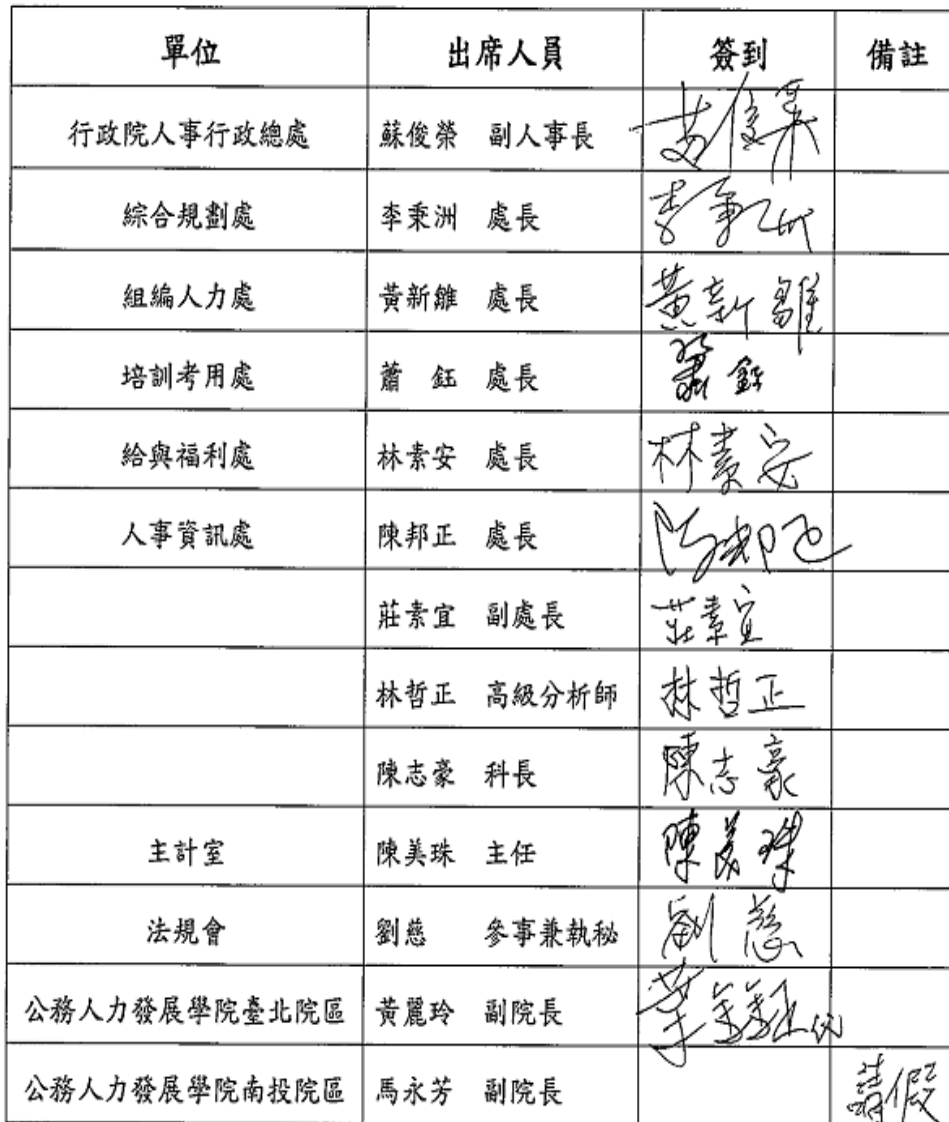 單位 出席人員 簽到 備註
行政院人事行政總處 蘇俊榮 副人事長
綜合規劃處 李秉洲 處長
組編人力處 黃新雛 處長 黃新雛
培訓考用處 蕭 鈺 處長 蕭鈺
給與福利處 林素安 處長 林素安
人事資訊處 陳邦正 處長 陳邦正
莊素宜 副處長 莊素宜
林哲正 高級分析師 林哲正
陳志豪 科長 陳志豪
主計室 陳美珠 主任 陳美珠
法規會 劉慈 參事兼執秘 劉慈
公務人力發展學院臺北院區 黃麗玲 副院長
公務人力發展學院南投院區 馬永芳 副院長 請假